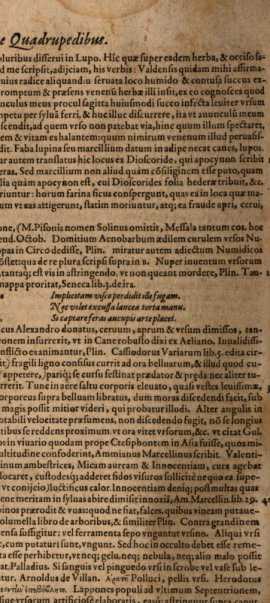 e Quadrupedibus.
pluribus disserui in Lupo. Hîc quæ super eadem herba, & occiso sa-
d me scripsit, adijciam, his verbis: Valdensis quidam mihi affirma-
uius radice aliquandiu seruata loco humido & contusa succus ex-
romptum & præsens venenū herbæ illi insit, ex eo cognosces quod
unculus meus procul sagitta huiusmodi succo infecta leuiter vrsum
mpetu per syluā ferri, & huc illuc discurrere, ita vt auunculus meus
escendit, ad quem vrso non patebat via, hinc quum illum spectaret,
em & vitam exhalantem: quum nimirum venenum illud peruasis-
dit. Faba lupina seu marcillium datum in adipe necat canes, lupos
ar autem translatus hic locus ex Dioscoride, qui apocyn non scribit
eras. Sed marcillium non aliud quàm cõsiliginem esse puto, quam
lia quàm apocyn non est, cui Dioscorides folia hederæ tribuit, &c.
riuntur: horum farina ficus conspergunt, quas ex in loca quæ ma-
um vt eas attigerunt, statim moriuntur, atq; ea fraude apri, cerui,
one, (M. Pisonis nomen Solinus omittit, Messala tantum cos. hoc
end. Octob. Domitium Aenobarbum ædilem curulem vrsos Nu-
opas in Circo dedisse, Plin. miratur autem adiectum Numidicos
õstetque de re plura scripsi supra in a. Nuper inuentum vrsorum
tantaq; est vis in astringendo, vt non queant mordere, Plin. Tan-
nappa proritat, Seneca lib. 3. de ira.
Implicitam visco perdidit ille fugam.
Nec volet excussa lancea torta manu.
Si captare feras aucupio arte placet.
cus Alexandro donatus, ceruum, aprum & vrsum dimissos, tan-
onem insurrexit, vt in Cane robusto dixi ex Aeliano. Inualidissi-
onflicto exanimantur, Plin. Cassiodorus Variarum lib. 5. edita cir-
it) fragili ligno confisus currit ad ora belluarum, & illud quod cu-
appetere, pariq; se cursu festinat prædator & præda: nec aliter tu-
rrerit. Tunc in aere saltu corporis eleuato, quasi vestes leuissimæ,
orporeus supra belluam libratus, dum moras discedendi facit, sub
magis possit mitior videri, qui probatur illudi. Alter angulis in
otabili velocitate præsumens, non discedendo fugit, nō se longius
tibus se reddens proximum, vt ora vitet vrsorum, &c. vt citat Gul.
io in viuario quodam prope Ctesiphontem in Asia fuisse, quos mi-
multitudine confoderint, Ammianus Marcellinus scribit. Valenti-
ninum ambestrices, Micam auream & Innocentiam, cura agebat
locaret, custodesq; adderet fidos visuros sollicitè ne quo ex supe-
vt conijcio) luctificus calor. Innocentiam deniq; post multas quas
ene meritam in syluas abire dimisit innoxiā, Am. Marcellin. lib. 29.
pinos prærodit & vuas: quod ne fiat, falces, quibus vineam putaue-
olumella libro de arboribus, & similiter Plin. Contra grandinem
ensa suffigitur: vel ferramenta sepo vnguntur vrsino. Aliqui vrsi
, cum putaturi sunt, vngunt. Sed hoc in occulto debet esse reme-
ta esse perhibetur, vt neq; gelu, neq; nebula, neq; alio malo possit
at. Palladius. Si sanguis vel pinguedo vrsi in scrobe vel vase sub le-
tur. Arnoldus de Villan. Polluci, pellis vrsi. Herodotus
Lappones populi ad vltimum Septentrionem,